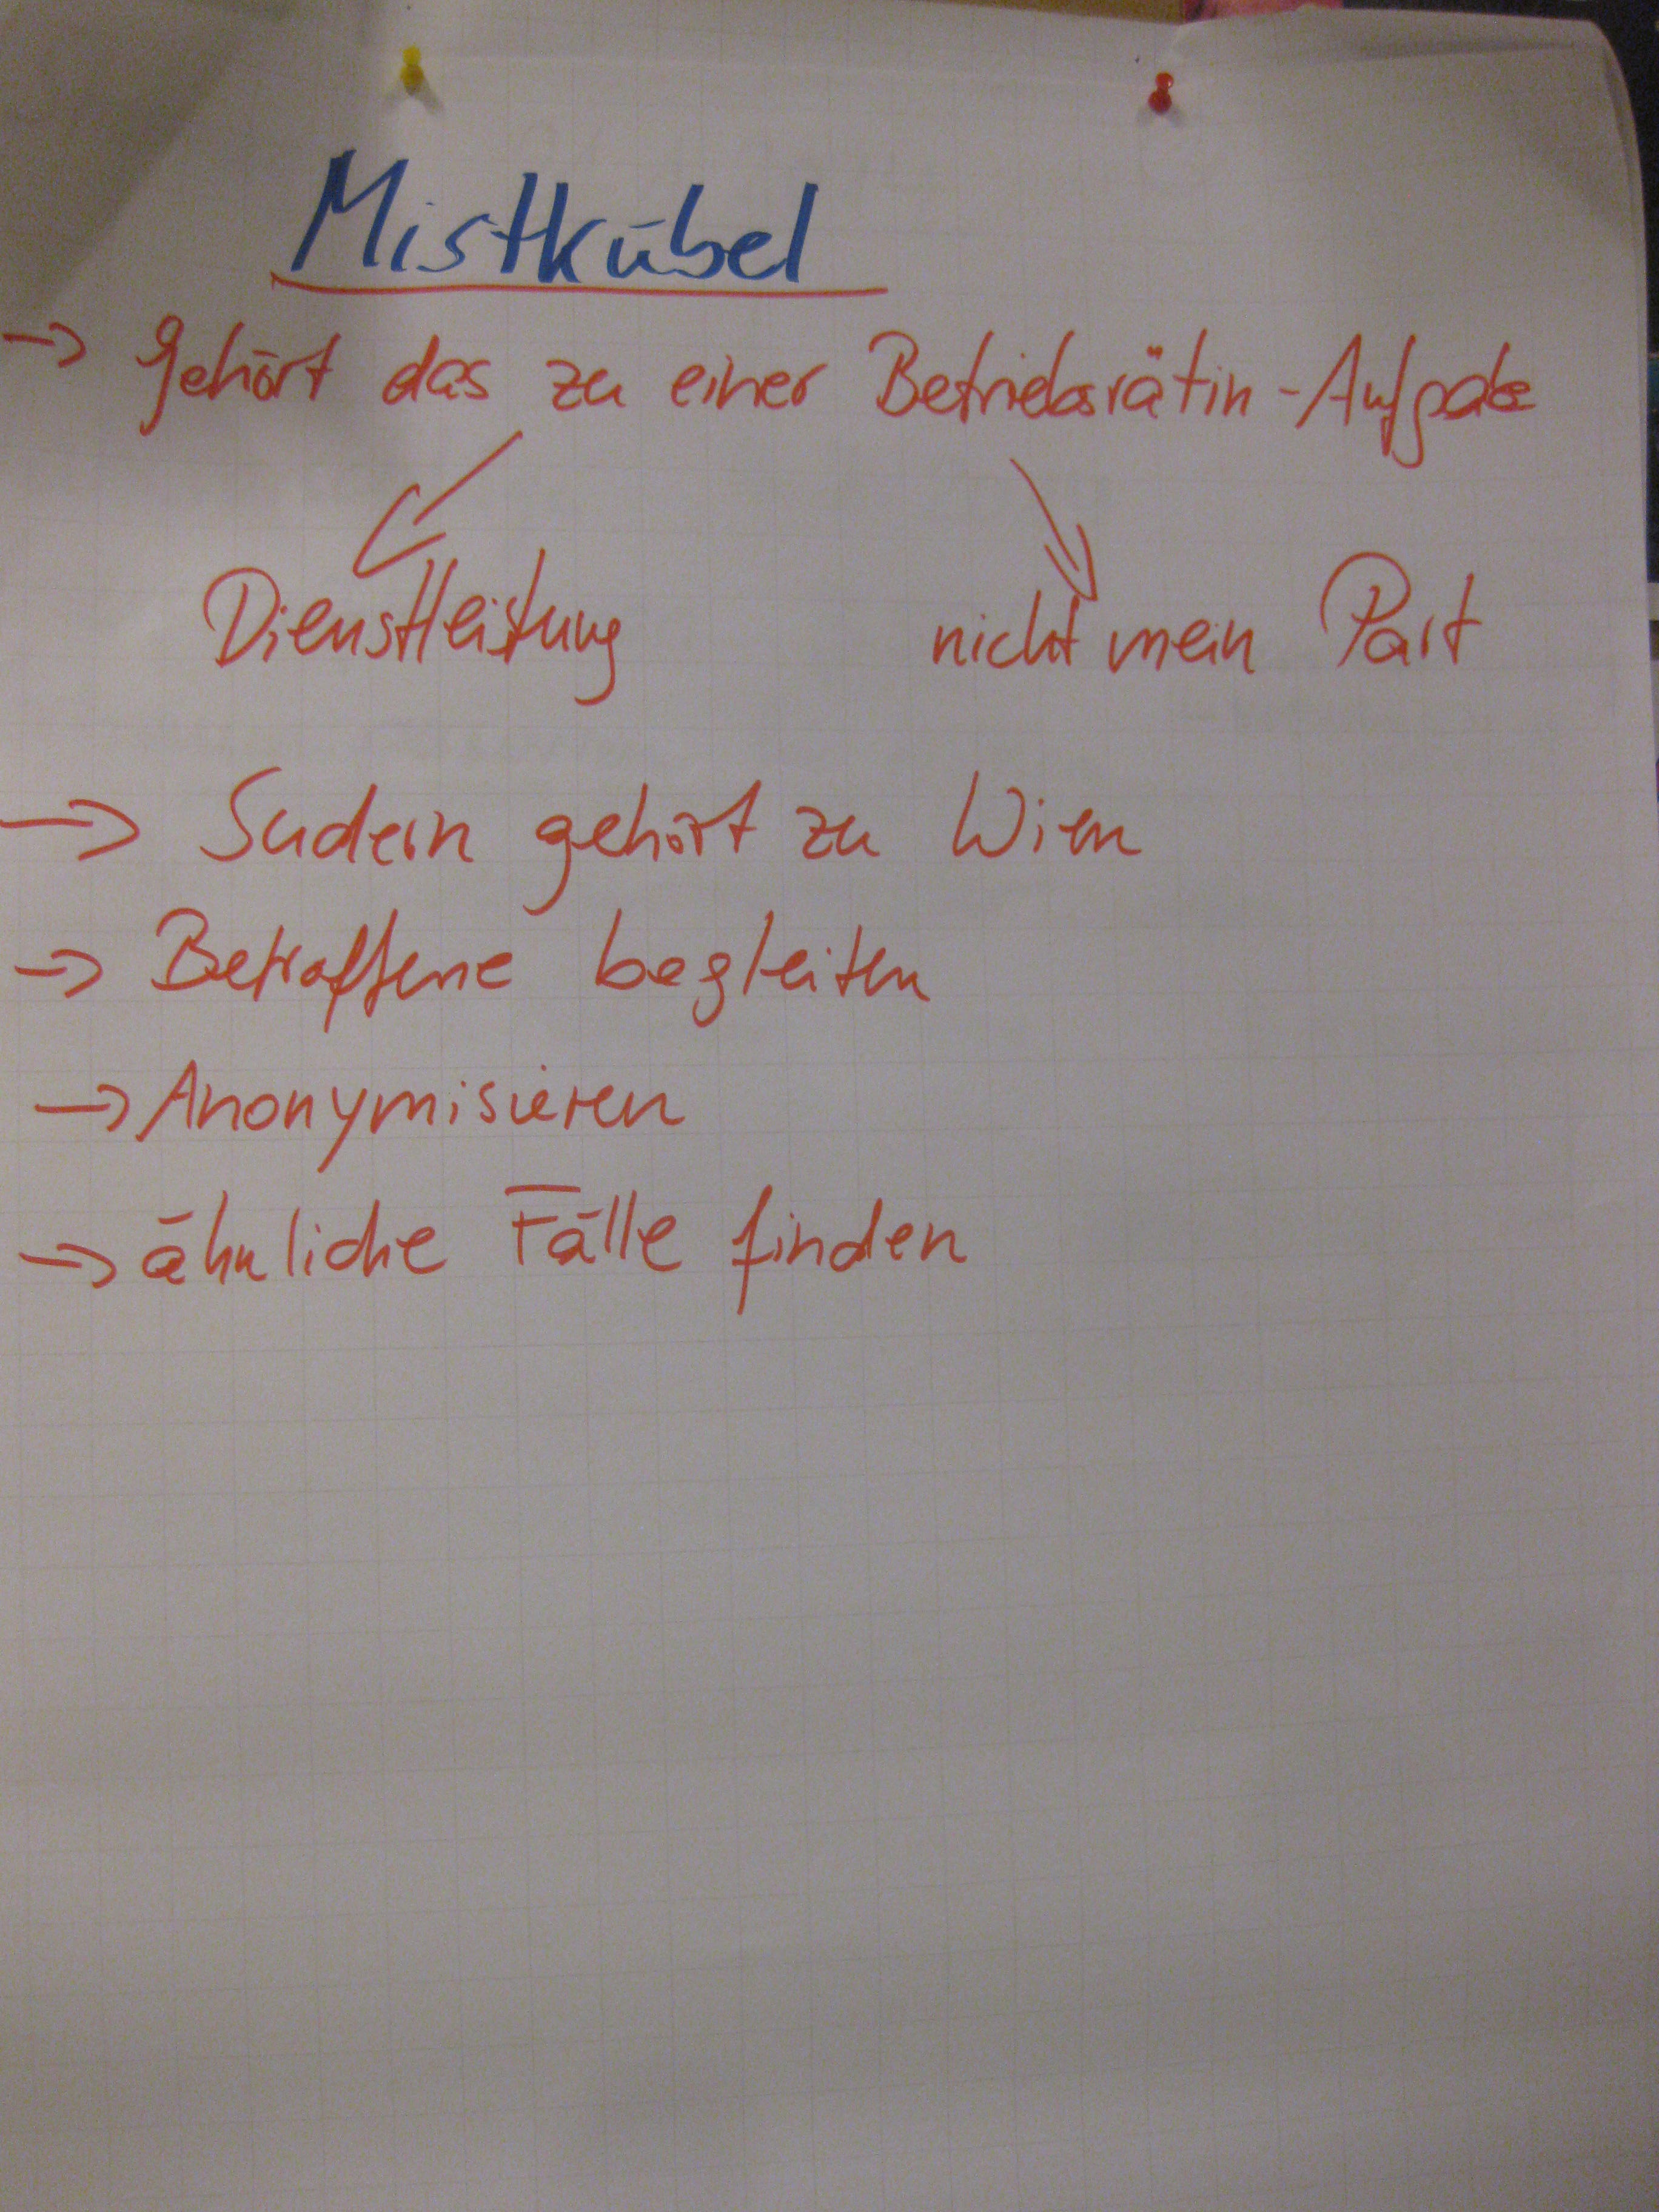 Mistkübel
→ Gehört das zu einer Betriebsrätin-Aufgabe
Dienstleistung nicht mein Part
→ Sudern gehört zu Wien
→ Betroffene begleiten
→ Anonymisieren
→ ähnliche Fälle finden